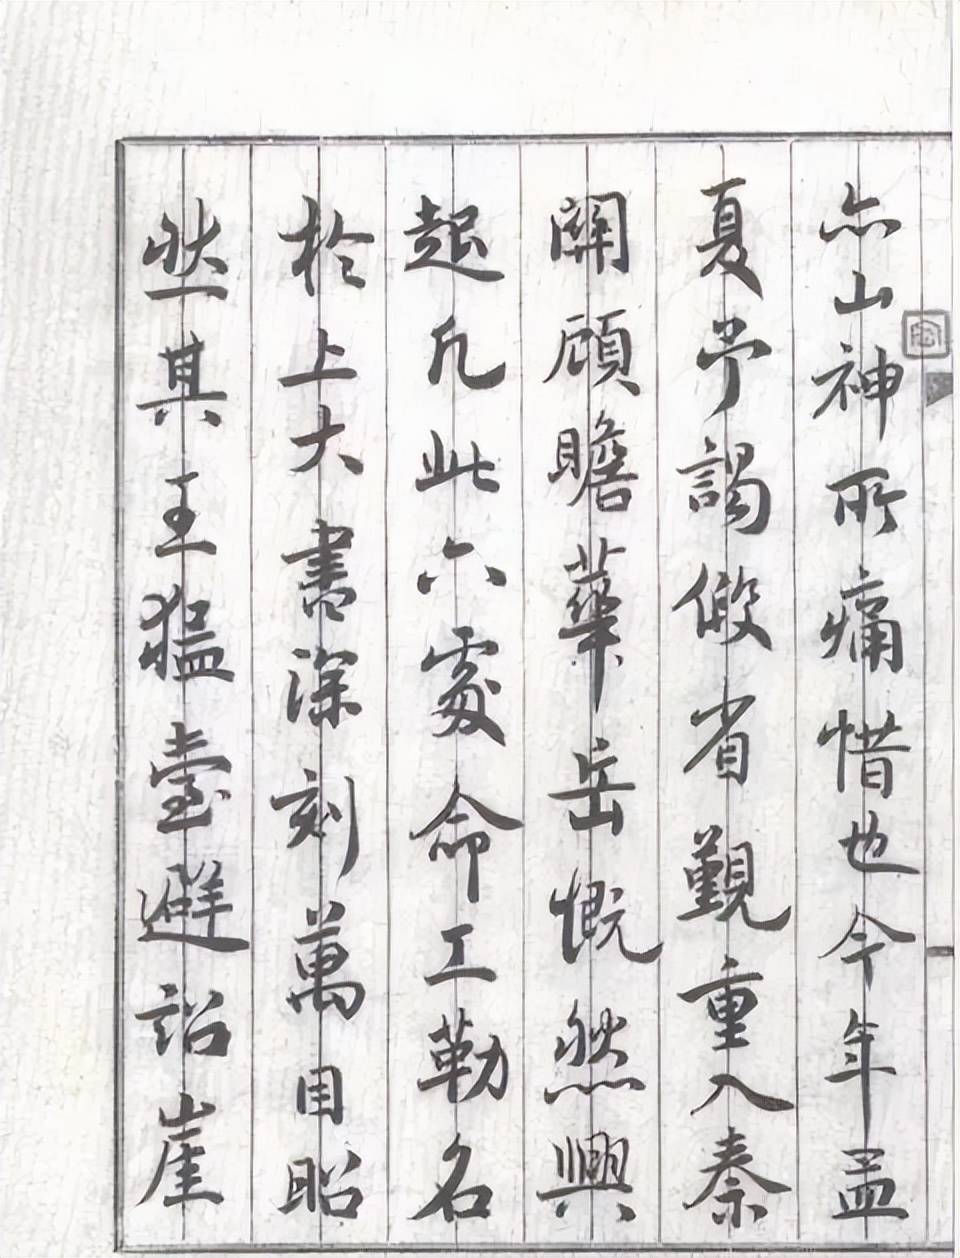 亦山神所痛惜也今年孟
夏予謁假省觐重入秦
關顧瞻華岳慨然興
起凡此六處命工勒名
於上大書深刻萬目昭
然其王猛臺避詔崖